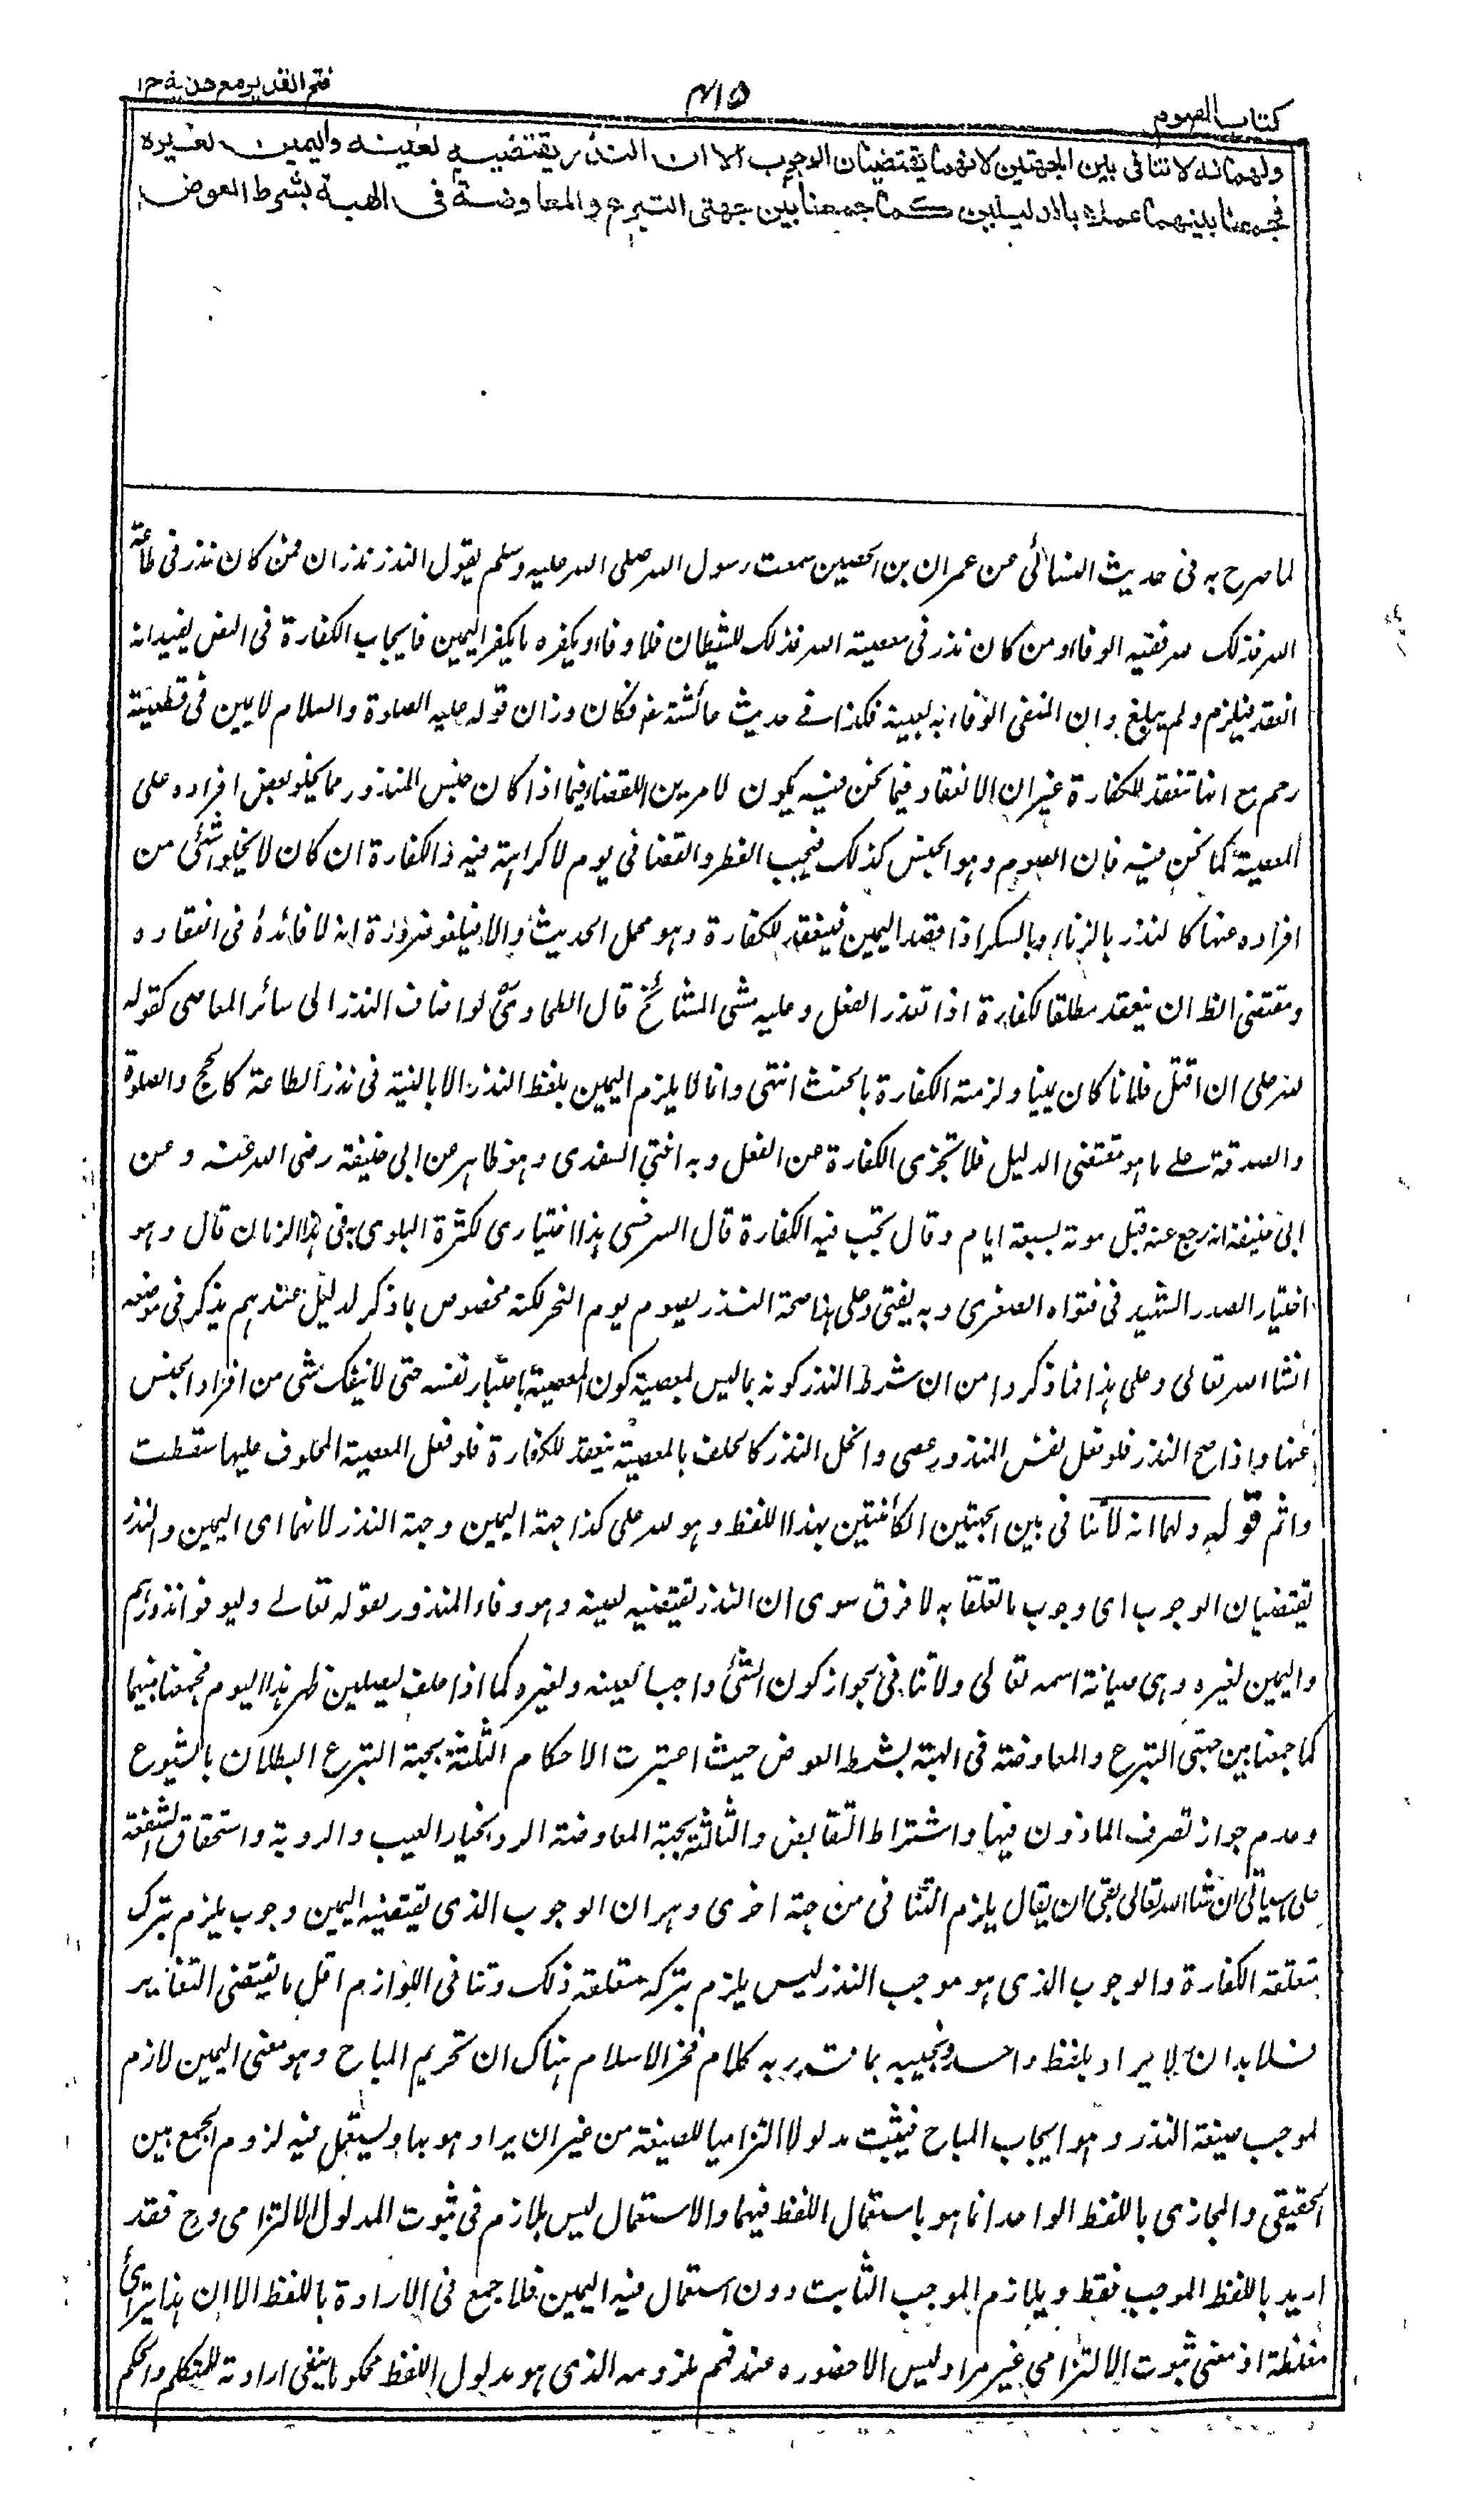 كتاب الصوم
٤١٥
فتح القدير مع هداية ج١
ولهما انه لا تنافى بين الجهتين لانهما يقتضيان الوجوب الا ان النذر يقتضيه لعينه واليمين لغيره
فجمعنا بينهما عملا بالدليلين كما جمعنا بين جهتى التبرع والمعاوضة فى الهبة بشرط العوض
لما صرح به فى حديث النسائى عن عمران بن الحصين سمعت رسول الله صلى الله عليه وسلم يقول النذر نذران فمن كان نذر فى طاعة
الله فذلك لله ففيه الوفاء ومن كان نذر فى معصية الله فذلك للشيطان فلا وفاء ويكفره ما يكفر اليمين فايجاب الكفارة فى النص يفيد انه
انعقد فيلزم ولم يبلغ وان المنفى الوفاء به بعينه فكذا فى حديث عائشة رض فكان وزان قوله عليه الصلوة والسلام لا يمين فى قطيعة
رحم مع انها تنعقد للكفارة غير ان الانعقاد فيما نحن فيه يكون لامرين للقضاء فيما اذا كان جنس المنذور مما يخلو بعض افراده على
المعصية كما نحن فيه فان الصوم وهو الجنس كذلك فيجب الفطر والقضا فى يوم لا كراهة فيه والكفارة ان كان لا يخلو شئ من
افراده عنها كالنذر بالزناء وبالسكر اذا قصد اليمين فينعقد للكفارة وهو محمل الحديث والا فيلغو ضرورة انه لا فائدة فى انعقاده
ومقتضى الظ ان ينعقد مطلقا لكفارة اذا تعذر الفعل وعليه مشى المشائخ قال الطحاوىؒ لو اضاف النذر الى سائر المعاصى كقوله
لله على ان اقتل فلانا كان يمينا ولزمته الكفارة بالحنث انتهى وانما لا يلزم اليمين بلفظ النذر الا بالنية فى نذر الطاعة كالحج والصلوة
والصدقة على ما هو مقتضى الدليل فلا تجزى الكفارة عن الفعل وبه افتى السغدى وهو ظاهر عن ابى حنيفة رضى الله عنه وعن
ابى حنيفة انه رجع عنه قبل موته بسبعة ايام وقال تجب فيه الكفارة قال السرخسى هذا اختيارى لكثرة البلوى به فى هذا الزمان قال وهو
اختيار الصدر الشهيد فى فتواه الصغرى وبه يفتى وعلى هذا صحة النذر بصوم يوم النحر لكنه مخصوص بما ذكر لدليل عندهم يذكر فى موضعه
انشاء الله تعالى وعلى هذا فما ذكروا من ان شرط النذر كونه بما ليس بمعصية كون المعصية باعتبار نفسه حتى لا ينفك شى من افراد الجنس
عنها واذا صح النذر فلو فعل نفس المنذور عصى وانحل النذر كالحلف بالمعصية ينعقد للكفارة فلو فعل المعصية المحلوف عليها سقطت
واثم قوله ولهما انه لا تنافى بين الجهتين الكائنتين بهذا اللفظ وهو لله على كذا جهة اليمين وجهة النذر لانهما اى اليمين والنذر
يقتضيان الوجوب اى وجوب ما تعلقا به لا فرق سوى ان النذر يقتضيه لعينه وهو وفاء المنذور بقوله تعالى وليوفوا نذورهم
واليمين لغيره وهى صيانة اسمه تعالى ولا تنافى بجواز كون الشئ واجبا لعينه ولغيره كما اذا حلف ليصلين ظهر هذا اليوم فجمعنا بينهما
كما جمعنا بين جهتى التبرع والمعاوضة فى الهبة بشرط العوض حيث اعتبرت الاحكام الثلثة بجهة التبرع البطلان بالشيوع
وعدم جواز تصرف الماذون فيها واشتراط التقابض والثالثة بجهة المعاوضة الرد بخيار العيب والروية واستحقاق الشفعة
على ما سياتى ان شاء الله تعالى بقى ان يقال يلزم التنافى من جهة اخرى وهو ان الوجوب الذى يقتضيه اليمين وجوب يلزم بترك
متعلقه الكفارة والوجوب الذى هو موجب النذر ليس يلزم بترك متعلقه ذلك وتنافى اللوازم اقل ما يقتضى التغاير
فلا بد ان لا يراد بلفظ واحد ونجيبه بما قرر به كلام فخر الاسلام هناك ان تحريم المباح وهو معنى اليمين لازم
لموجب صيغة النذر وهو ايجاب المباح فيثبت مدلولا التزاميا للصيغة من غير ان يراد هو بها ويستعمل فيه لزوم الجمع بين
الحقيقى والمجازى باللفظ الواحد انما هو باستعمال اللفظ فيهما والاستعمال ليس بلازم فى ثبوت المدلول الالتزامى وح فقد
اريد باللفظ الموجب فقط ويلازم الموجب الثابت دون استعمال فيه اليمين فلا جمع فى الارادة باللفظ الا ان هذا يترائى
مغلطة اذ معنى ثبوت الالتزامى غير مراد ليس الا حضوره عند فهم ملزومه الذى هو مدلول اللفظ محكوما بنفى ارادته للمتكلم والحكم